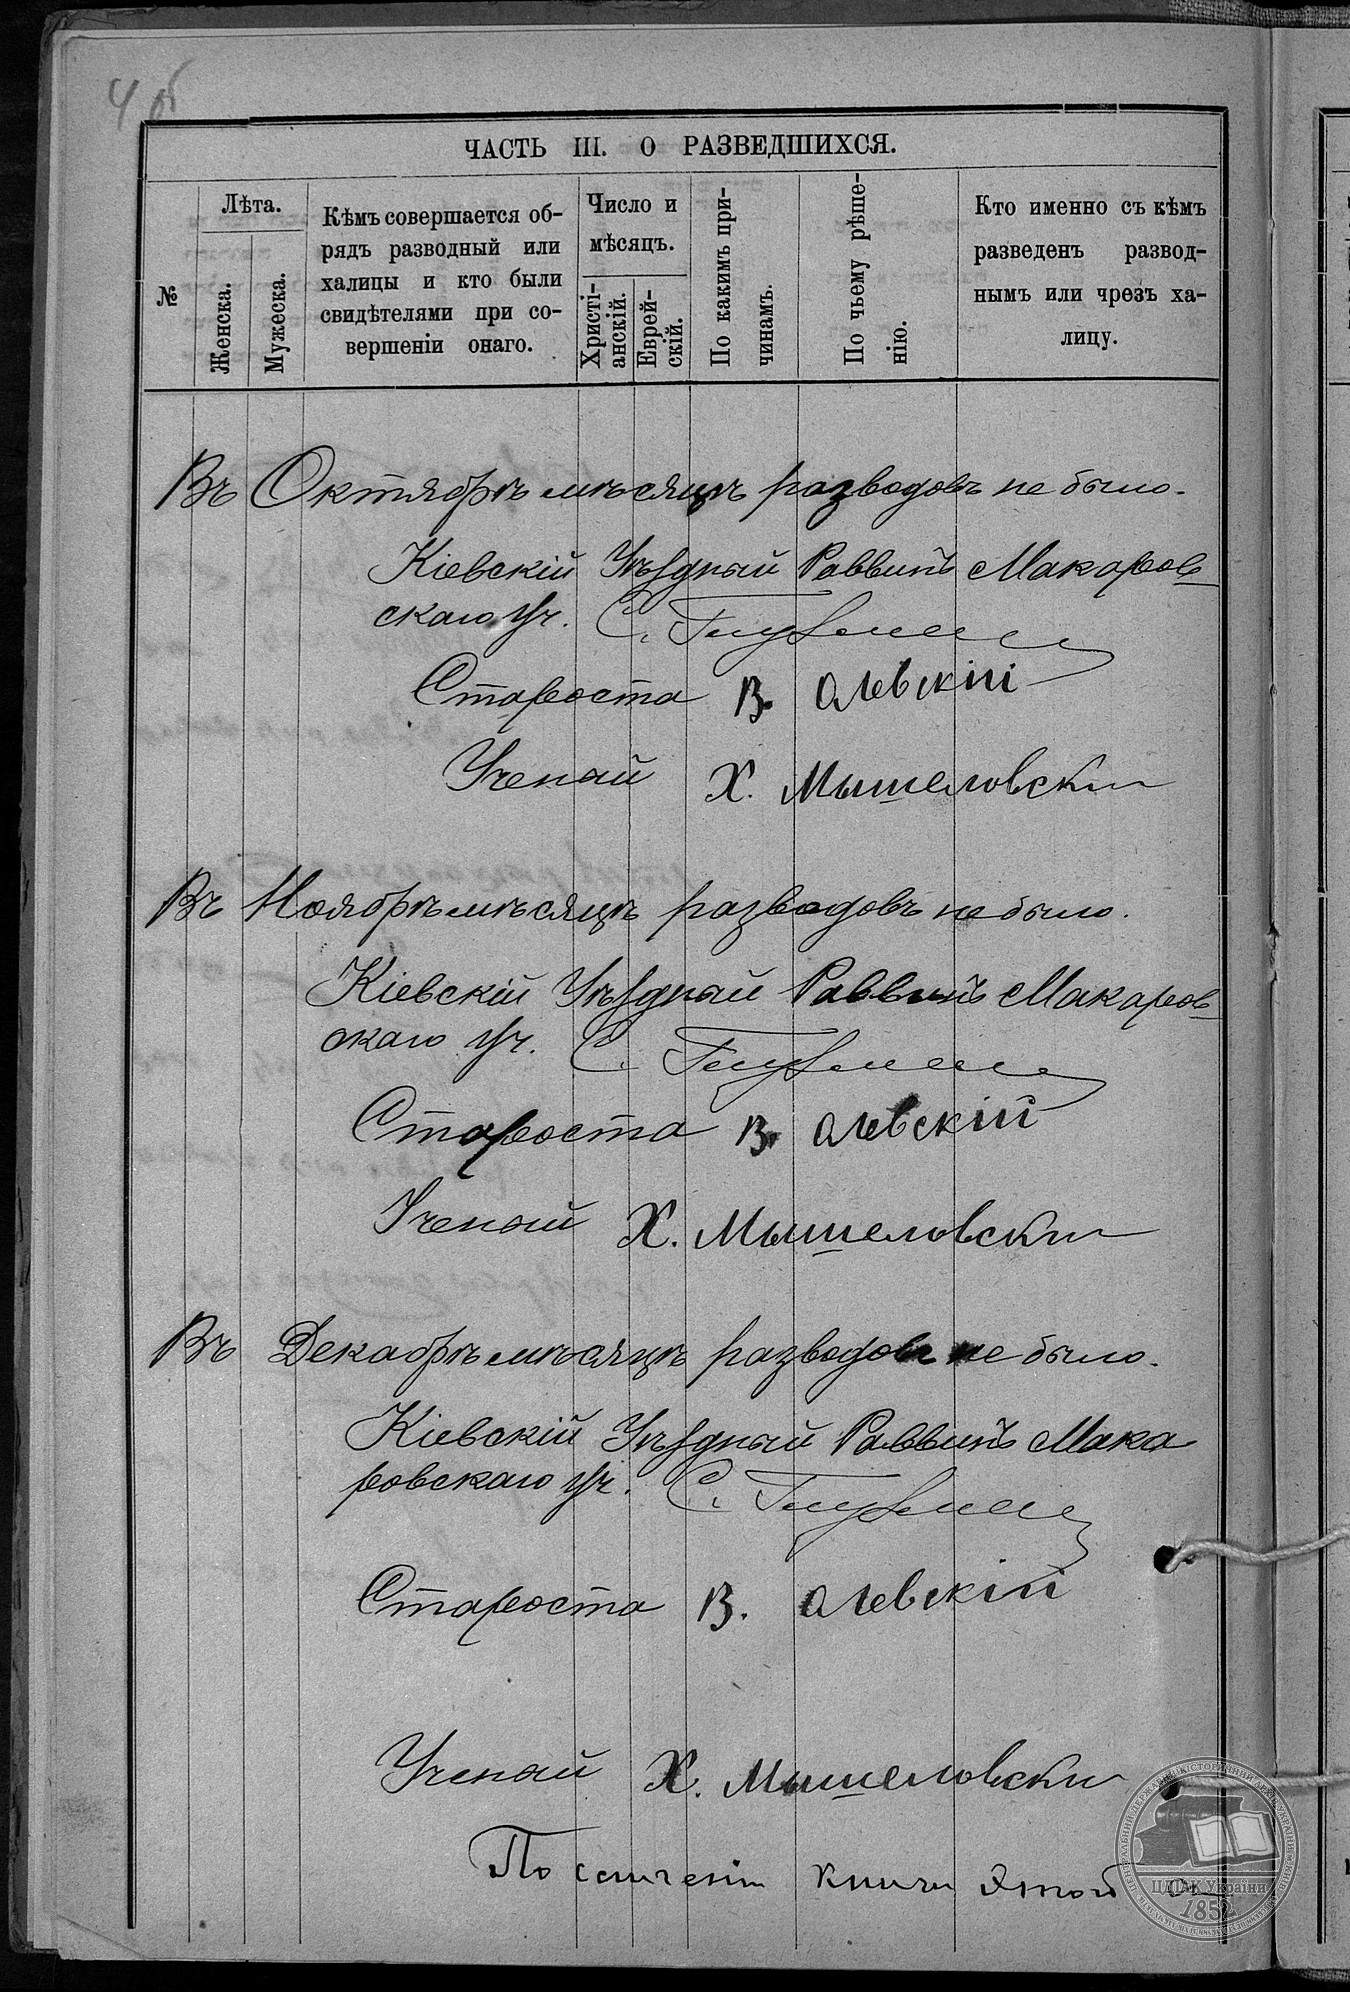 4 об
ЧАСТЬ III. О РАЗВЕДШИХСЯ.
№
Лѣта.
Женска.
Мужеска.
Кѣмъ совершается об-
рядъ разводный или
халицы и кто были
свидѣтелями при со-
вершеніи онаго.
Число и
мѣсяцъ.
Христі-
анскій.
Еврей-
скій.
По какимъ при-
чинамъ.
По чьему рѣше-
нію.
Кто именно съ кѣмъ
разведенъ развод-
нымъ или чрезъ ха-
лицу.
Въ Октябрѣ мѣсяцѣ разводовъ не было.
Кіевскій Уѣздный Раввинъ Макаров-
скаго Уч. С.
Староста В. Олевскій
Ученый Х. Мышеловский
Въ Ноябрѣ мѣсяцѣ разводовъ не было.
Кіевскій Уѣздный Раввинъ Макаров-
скаго Уч. С.
Староста В. Олевскій
Ученый Х. Мышеловский
Въ Декабрѣ мѣсяцѣ разводовъ не было.
Кіевскій Уѣздный Раввинъ Мака
ровскаго Уч. С.
Староста В. Олевскій
Ученый Х. Мышеловский
По сличеніи книги этой съ
ЦДІАК України
1852